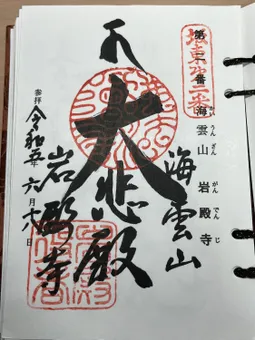 坂東第二番
第二番 海雲山 岩殿寺
かいうんざん がんでんじ
海雲山
大悲殿
岩殿寺
参拝 令和五年六月十八日